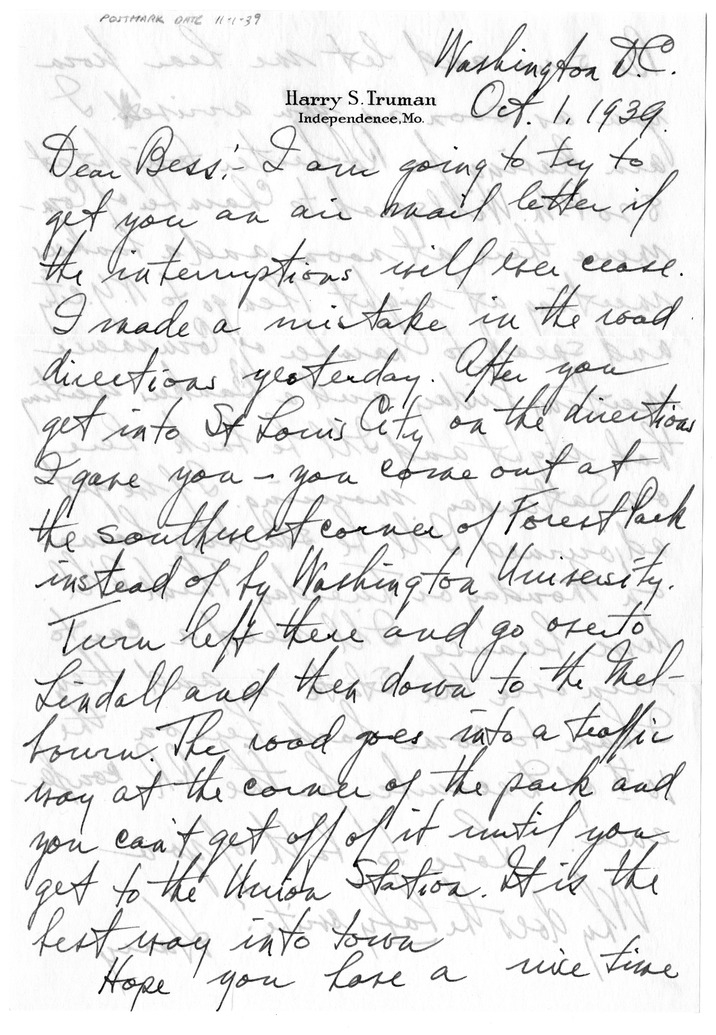 POSTMARK DATE 11-1-39
Washington D.C.
Harry S. Truman
Independence, Mo.
Oct. 1, 1939.
Dear Bess:- I am going to try to
get you an air mail letter if
the interruptions will ever cease.
I made a mistake in the road
directions yesterday. After you
get into St Louis City on the directions
I gave you – you come out at
the southwest corner of Forest Park
instead of by Washington University.
Turn left there and go over to
Lindall and then down to the Mel-
bourn. The road goes into a traffic
way at the corner of the park and
you can't get off of it until you
get to the Union Station. It is the
best way into town
Hope you have a nice time